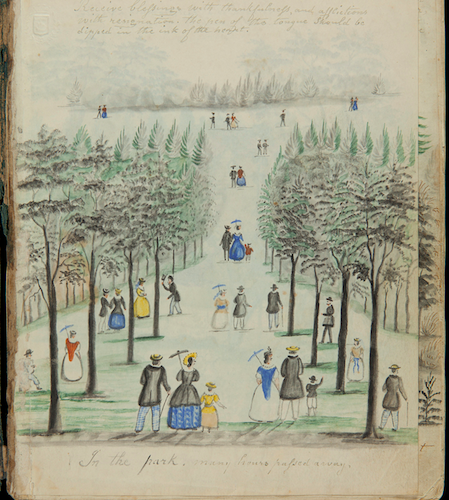 Receive blessings with thankfulness, and afflictions
with resignation. the pen of the tongue should be
dipped in the ink of the heart.
In the park. many times passed away.